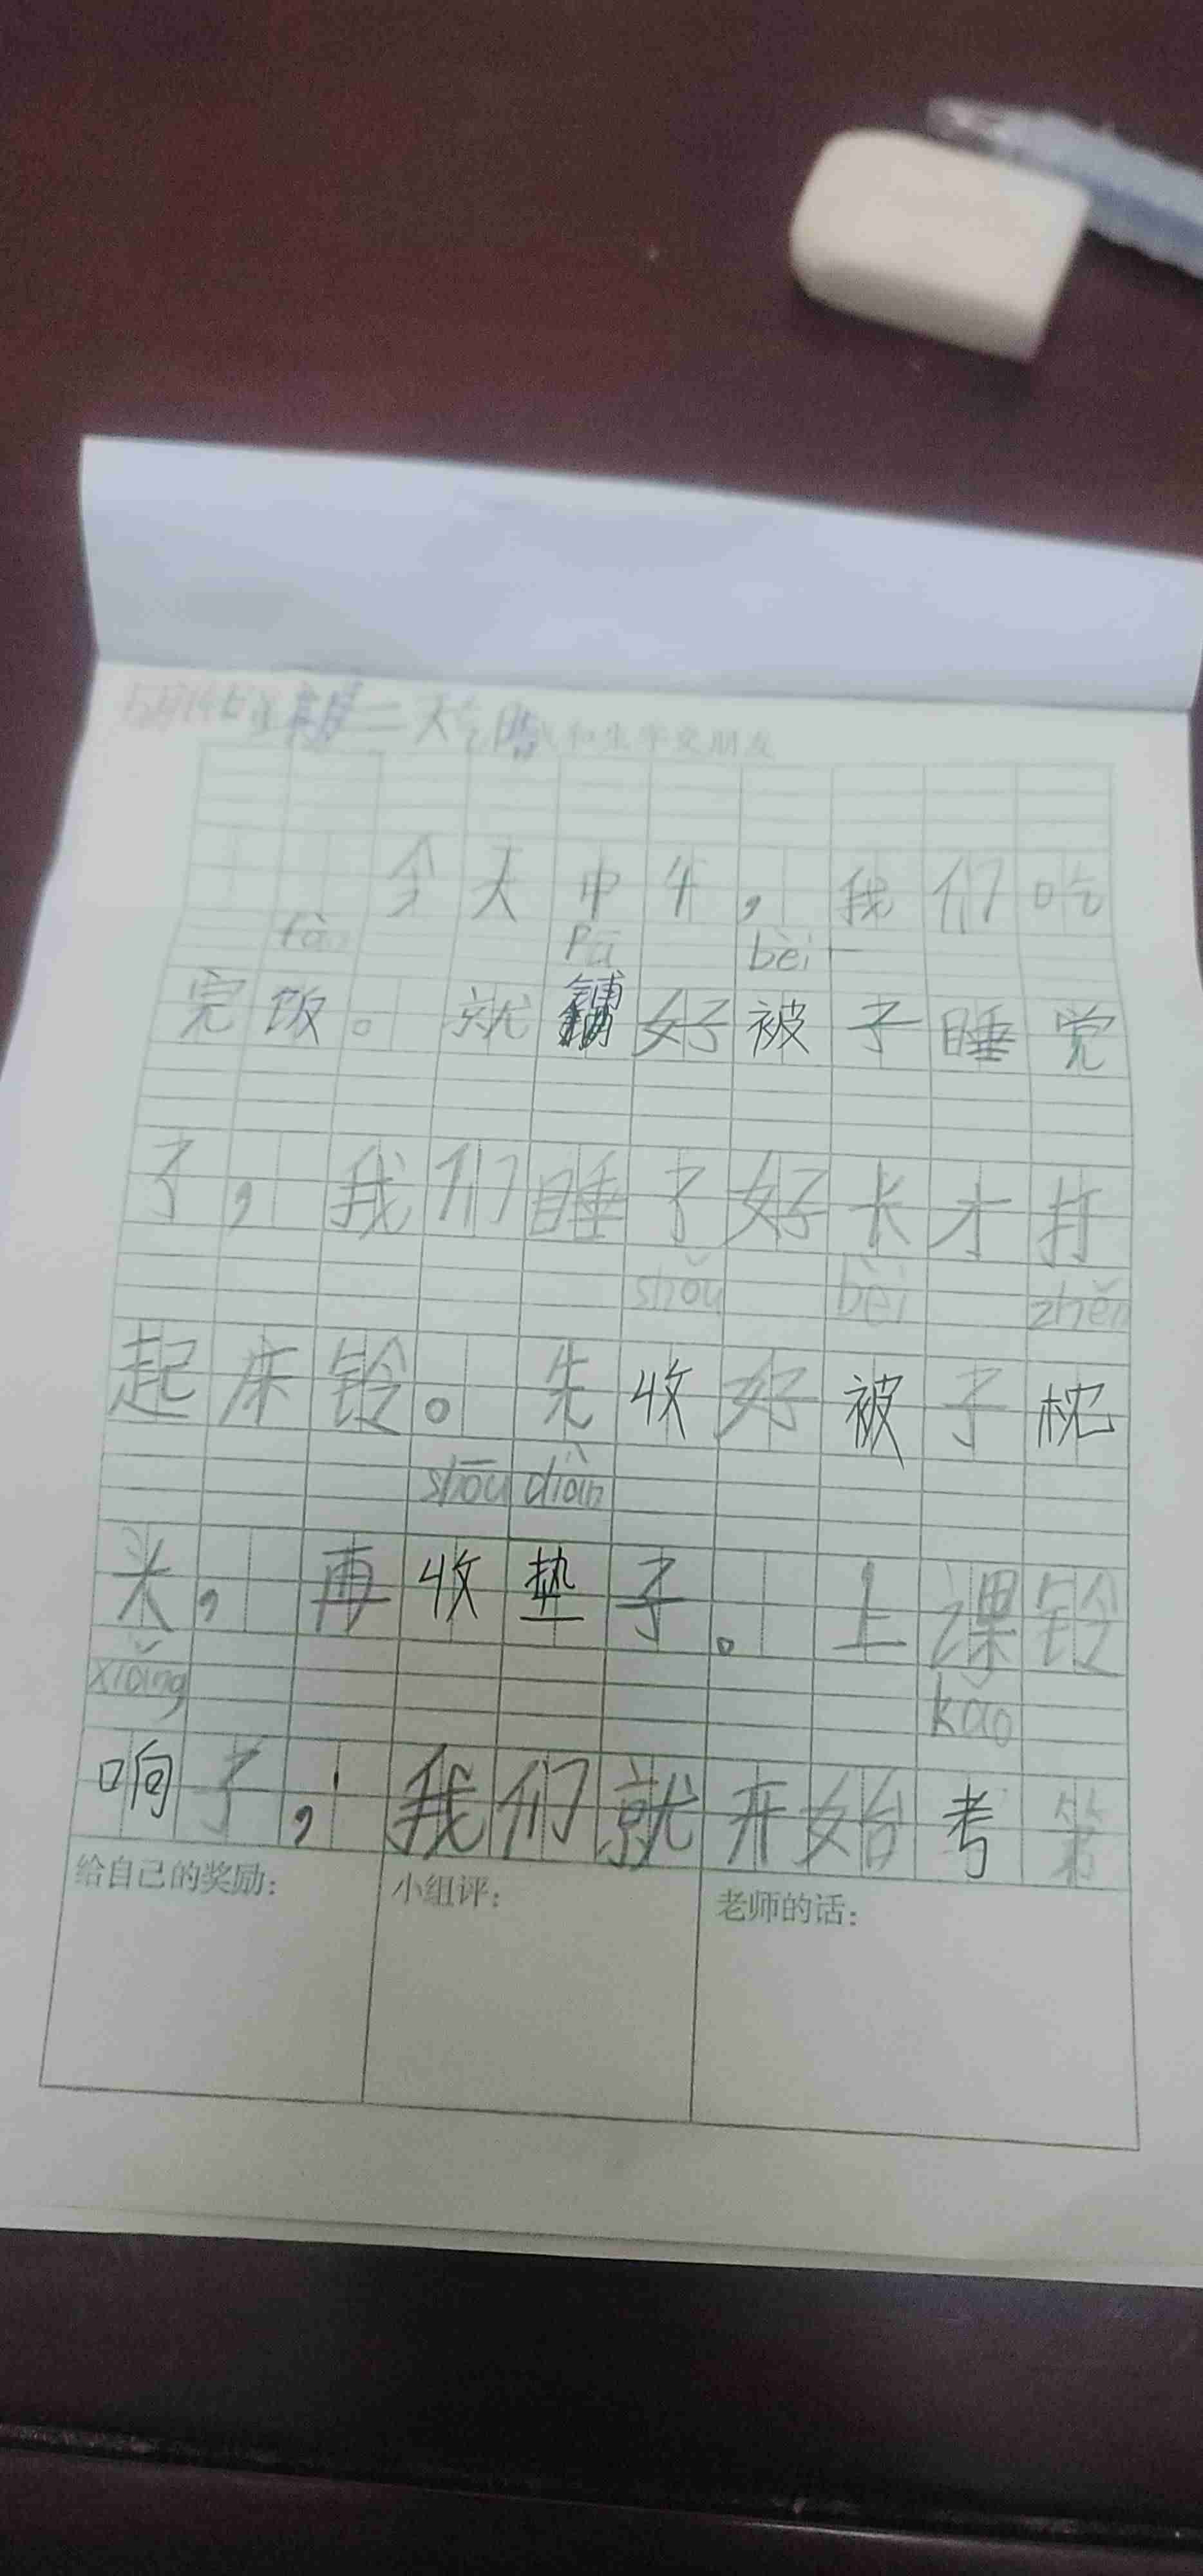 星期二 天气晴 我和生字交朋友
今天中午，我们吃
fàn pū bèi
完饭。就铺好被子睡觉
了，我们睡了好长才打
shǒu bèi zhěn
起床铃。先收好被子枕
shōu diàn
头，再收垫子。上课铃
xiǎng kǎo
响了，我们就开始考
给自己的奖励： 小组评： 老师的话：